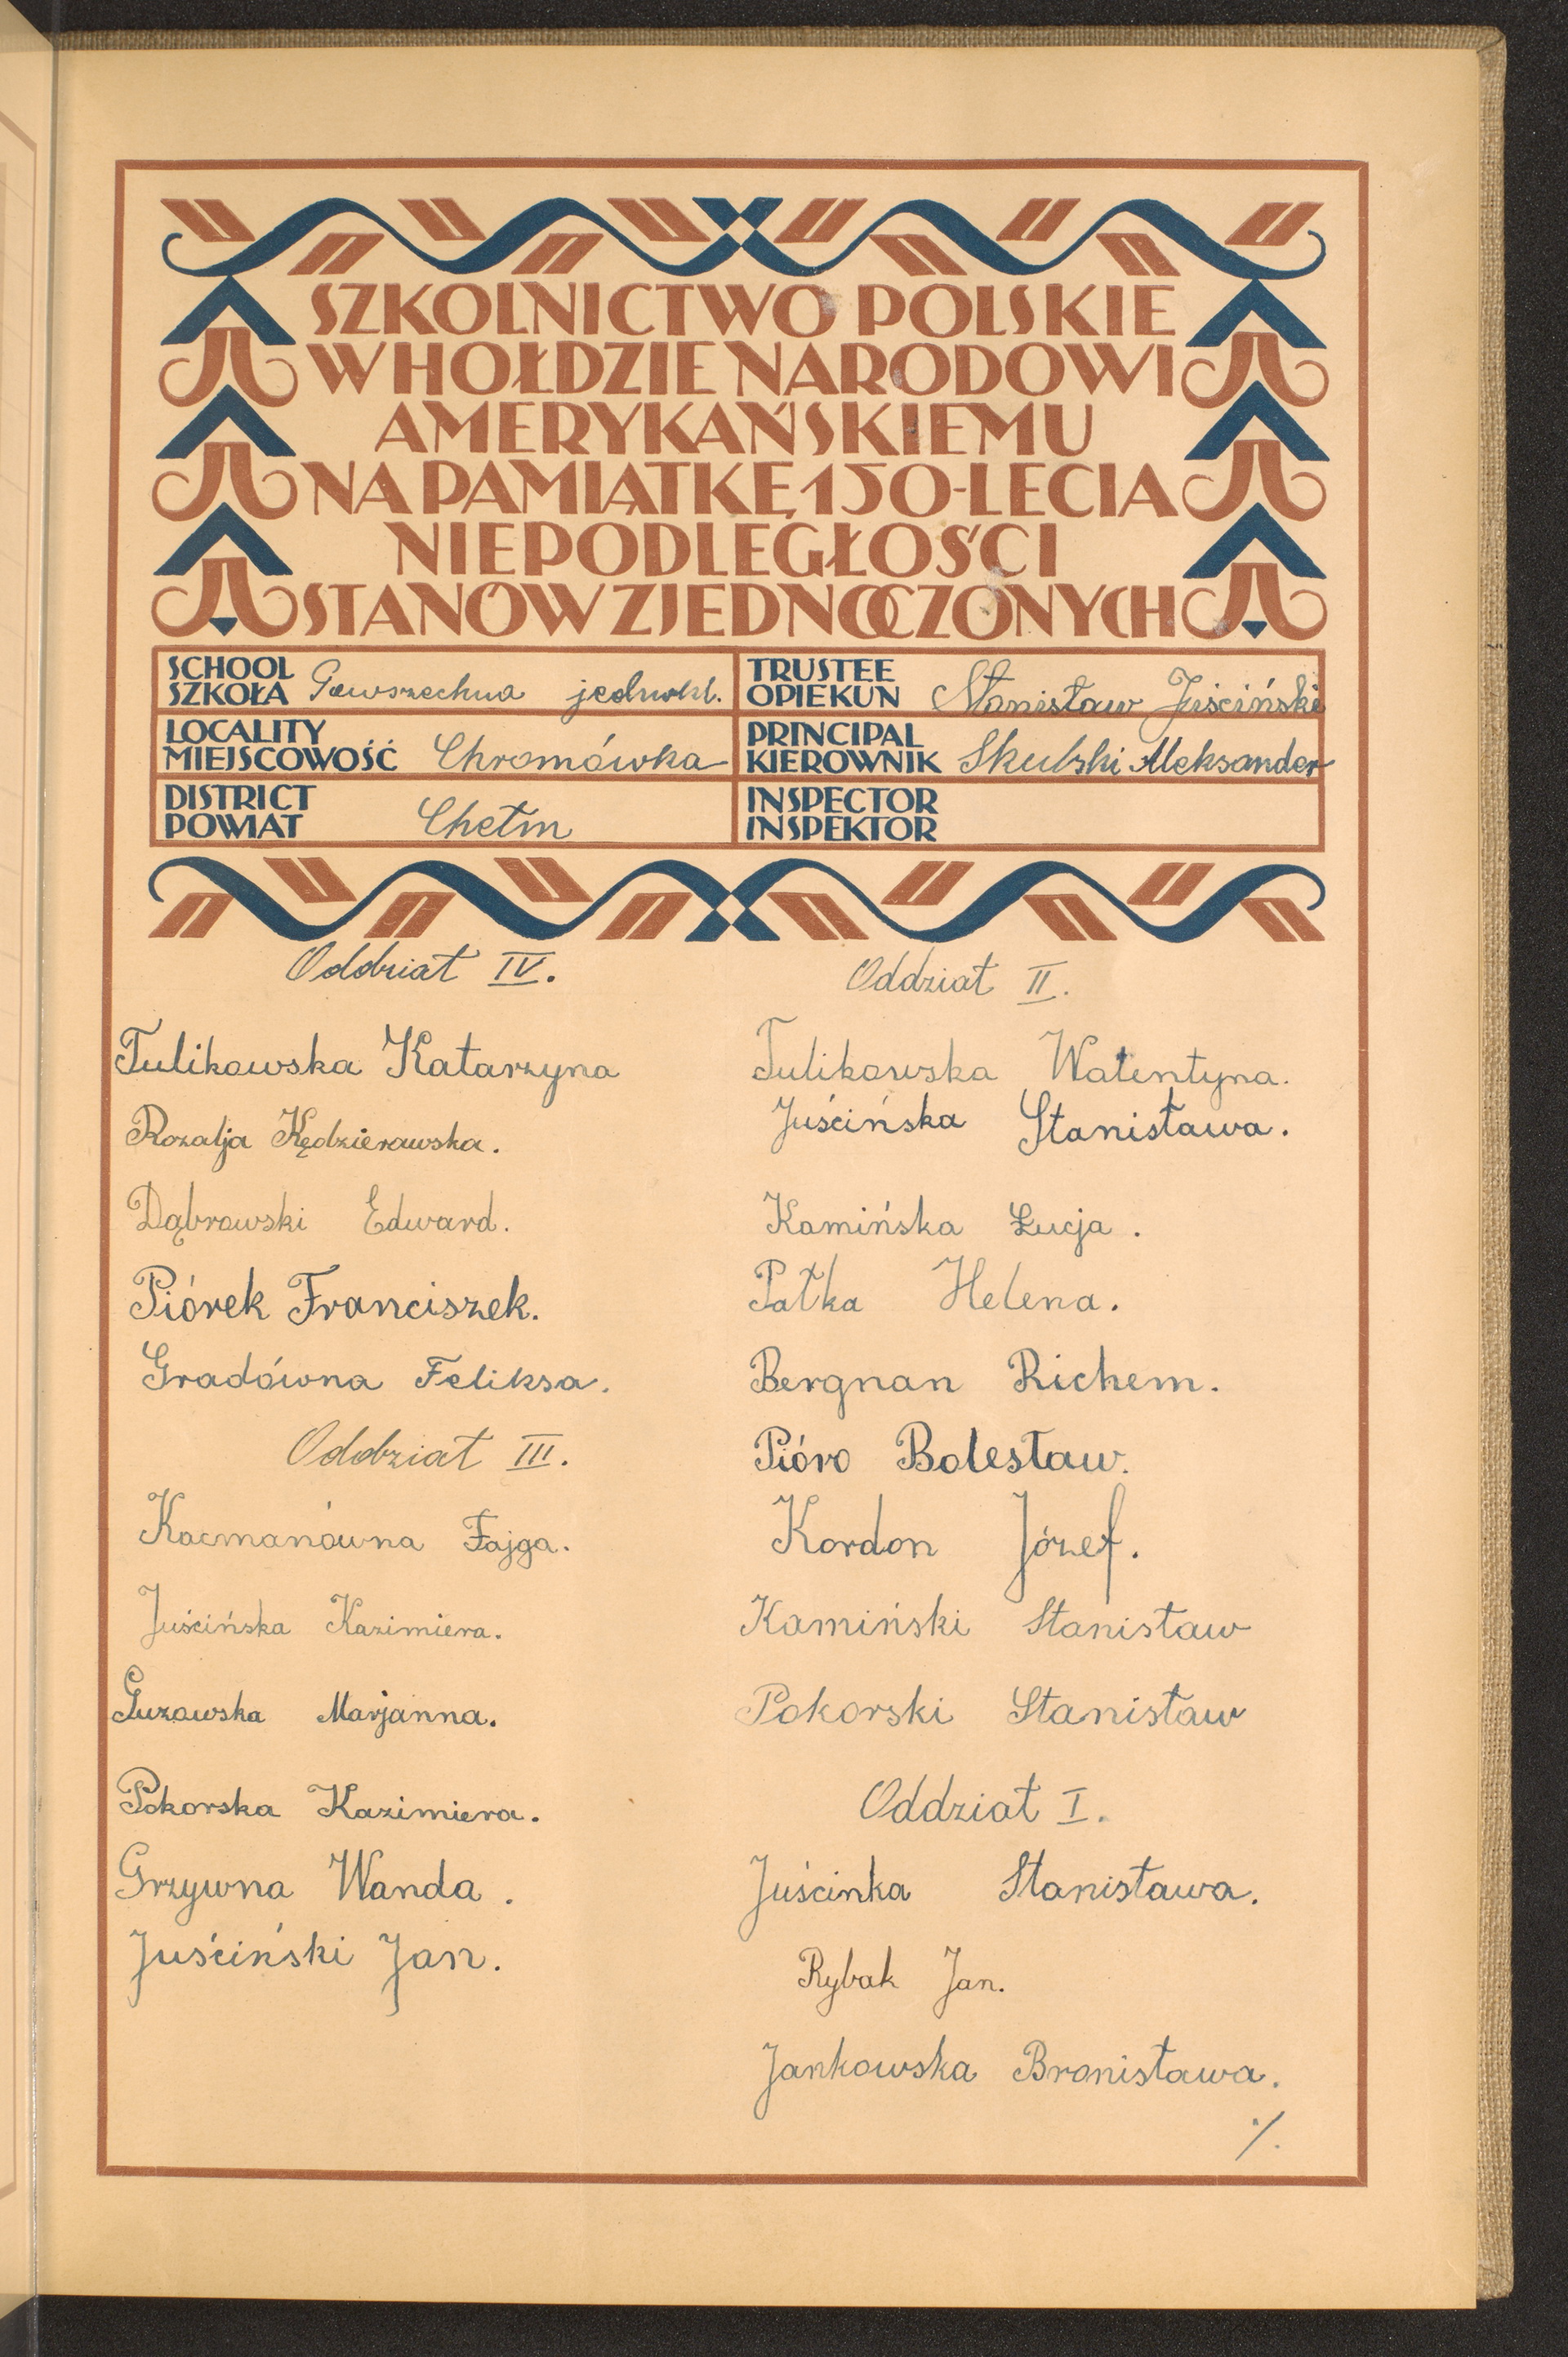 SZKOLNICTWO POLSKIE
W HOŁDZIE NARODOWI
AMERYKAŃSKIEMU
NA PAMIĄTKĘ 150-LECIA
NIEPODLEGŁOŚCI
STANÓW ZJEDNOCZONYCH
SCHOOL
SZKOŁA Powszechna jednokl.
TRUSTEE
OPIEKUN Stanisław Juściński
LOCALITY
MIEJSCOWOŚĆ Chromówka
PRINCIPAL
KIEROWNIK Skulski Aleksander
DISTRICT
POWIAT Chełm
INSPECTOR
INSPEKTOR
Oddział IV.
Tulikowska Katarzyna
Rozalja Kędzierawska.
Dąbrowski Edward.
Piórek Franciszek.
Gradówna Feliksa.
Oddział III.
Kacmanówna Fajga.
Juścińska Kazimiera.
Guzowska Marjanna.
Pokorska Kazimiera.
Grzywna Wanda.
Juściński Jan.
Oddział II.
Tulikowska Walentyna.
Juścińska Stanisława.
Kamińska Łucja.
Pałka Helena.
Bergnan Richem.
Pióro Bolesław.
Kordon Józef.
Kamiński Stanisław
Pokorski Stanisław
Oddział I.
Juścinka Stanisława.
Rybak Jan.
Jankowska Bronisława.
./.